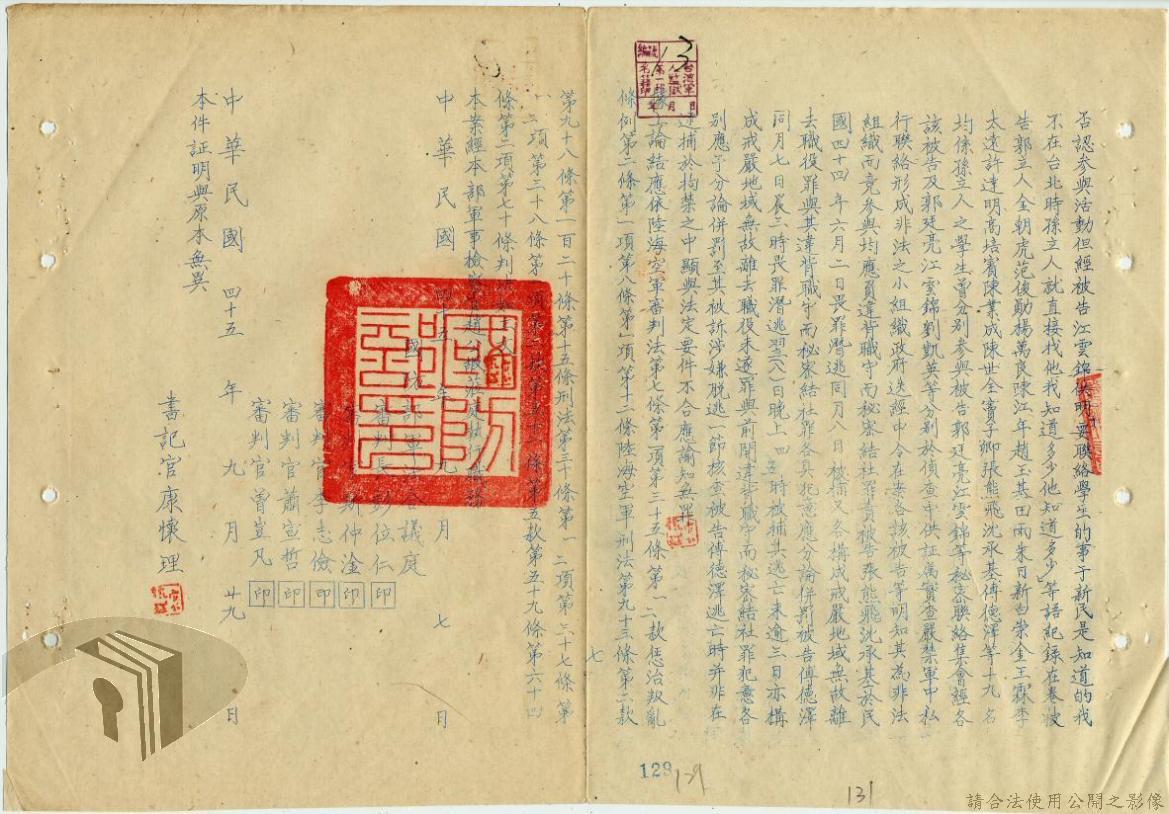 否認參與活動但經被告江雲錦供明要聯絡學生的事于新民是知道的我
不在台北時孫立人就直接找他我知道多少他知道多少」等語記錄在卷被
告郭立人金朝虎范俊勛楊萬良陳江年趙玉基田雨朱日新白崇金王霖李
太遠許達明高培賓陳業成陳世全竇子卿張熊飛沈承基傅德澤等十九名
均係孫立人之學生曾分別參與被告郭廷亮江雲錦等秘密聯絡集會經各
該被告及郭廷亮江雲錦劉凱英等分別於偵查中供証属實查嚴禁軍中私
行聯絡形成非法之小組織政府迭經申令在案各該被告等明知其為非法
組織而竟參與均應負違背職守而秘密結社罪責被告張熊飛沈承基於民
國四十四年六月二日畏罪潛逃同月八日被捕又各構成戒嚴地域無故離
去職役罪與其違背職守而秘密結社罪各具犯意應分論併罰被告傅德澤
同月七日晨三時畏罪潛逃翌(八)日晚上四時被捕其逃亡未逾三日亦構
成戒嚴地域無故離去職役未遂罪與前開違背職守而秘密結社罪犯意各
別應予分論併罰至其被訴涉嫌脫逃一節核查被告傅德澤逃亡時並非在
逮捕於拘禁之中顯與法定要件不合應諭知無罪
論結應依陸海空軍審判法第七條第二項第三十五條第一二款懲治叛亂
條例第二條第一項第八條第一項第十二條陸海空軍刑法第九十三條第二款
七
第九十八條第一百二十條第十五條刑法第三十條第一二項第三十七條第
一二項第二十八條第
條第五款第五十九條第六十四
條第二項第七十條判決
本案經本部軍事檢察官
中華民國四十五年九月七日
國防部軍法合議庭
審判長彭位仁印
仲淦印
審判官李志儉印
審判官蕭宣哲印
審判官曾豈凡印
中華民國四十五年九月廿九日
本件証明與原本無異
書記官康懷理
128
129
131
請合法使用公開之影像